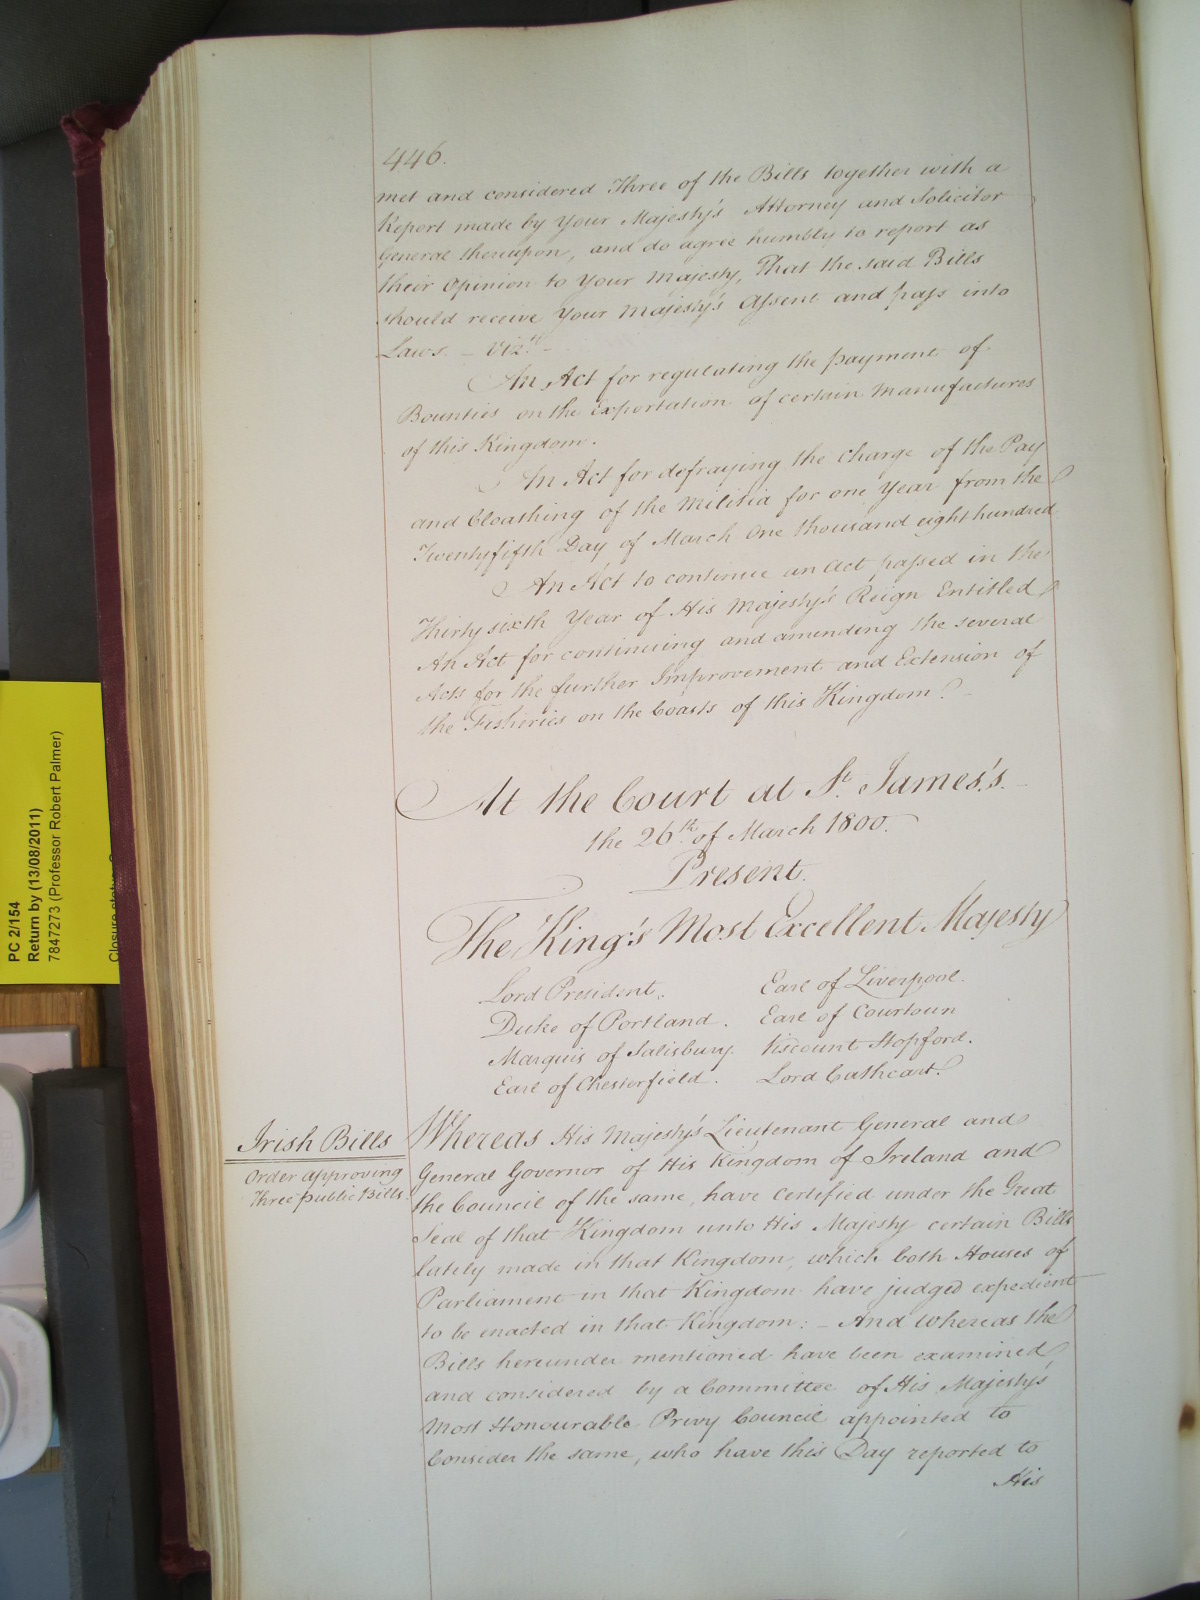 446.
met and considered Three of the Bills together with a
Report made by Your Majesty's Attorney and Solicitor
General thereupon, and do agree humbly to report as
their Opinion to Your Majesty, That the said Bills
should receive Your Majesty's Assent and pass into
Laws. – Vizt. –
An Act for regulating the payment of
Bounties on the Exportation of certain Manufactures
of this Kingdom.
An Act for defraying the Charge of the Pay
and Cloathing of the Militia for one Year from the
Twentyfifth Day of March One thousand eight hundred
An Act to continue an Act passed in the
Thirty sixth Year of His Majesty's Reign Entitled
An Act for continuing and amending the several
Acts for the further Improvement and Extension of
the Fisheries on the Coasts of this Kingdom. –
At the Court at St. James's. –
the 26th of March 1800.
Present.
The King's Most Excellent Majesty
Lord President. Earl of Liverpool.
Duke of Portland. Earl of Courtoun
Marquis of Salisbury. Viscount Stopford.
Earl of Chesterfield. Lord Cathcart.
Irish Bills
Order approving
Three public Bills.
Whereas His Majesty's Lieutenant General and
General Governor of His Kingdom of Ireland and
the Council of the same, have certified under the Great
Seal of that Kingdom unto His Majesty certain Bills
lately made in that Kingdom, which both Houses of
Parliament in that Kingdom have judged expedient
to be enacted in that Kingdom: – And whereas the
Bills hereunder mentioned have been examined
and considered by a Committee of His Majesty's
Most Honourable Privy Council appointed to
Consider the same, who have this Day reported to
His
PC 2/154
Return by (13/08/2011)
7847273 (Professor Robert Palmer)